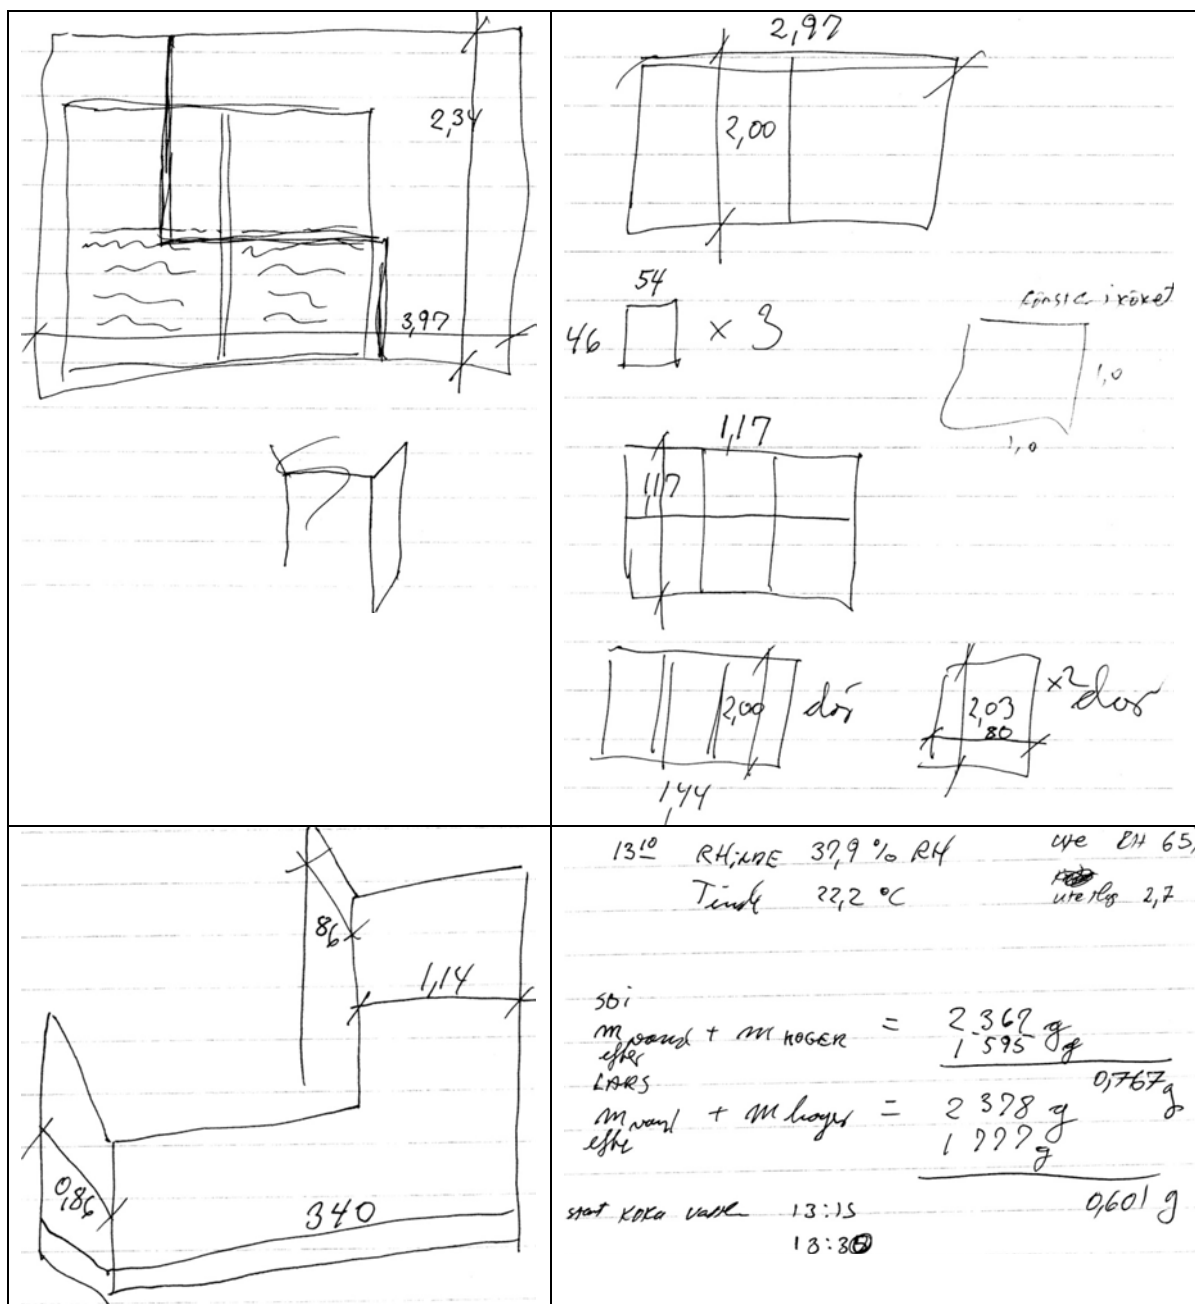 2,34
3,97
2,97
2,00
54
46 × 3
i köket
1,0
1,0
1,17
1,17
2,00 dör
1,44
×2 dor
2,03
80
86
1,14
0,86
340
13 10 RHinde 37,9 % RH ute RH 65,
Tinde 22,2 °C ute 2,7
SBi
m vand + m KOGER = 2 362 g
efter 1 595 g
0,767 g
LARS
m vand + m koger = 2 378 g
efter 1 777 g
0,601 g
start koka 13:15